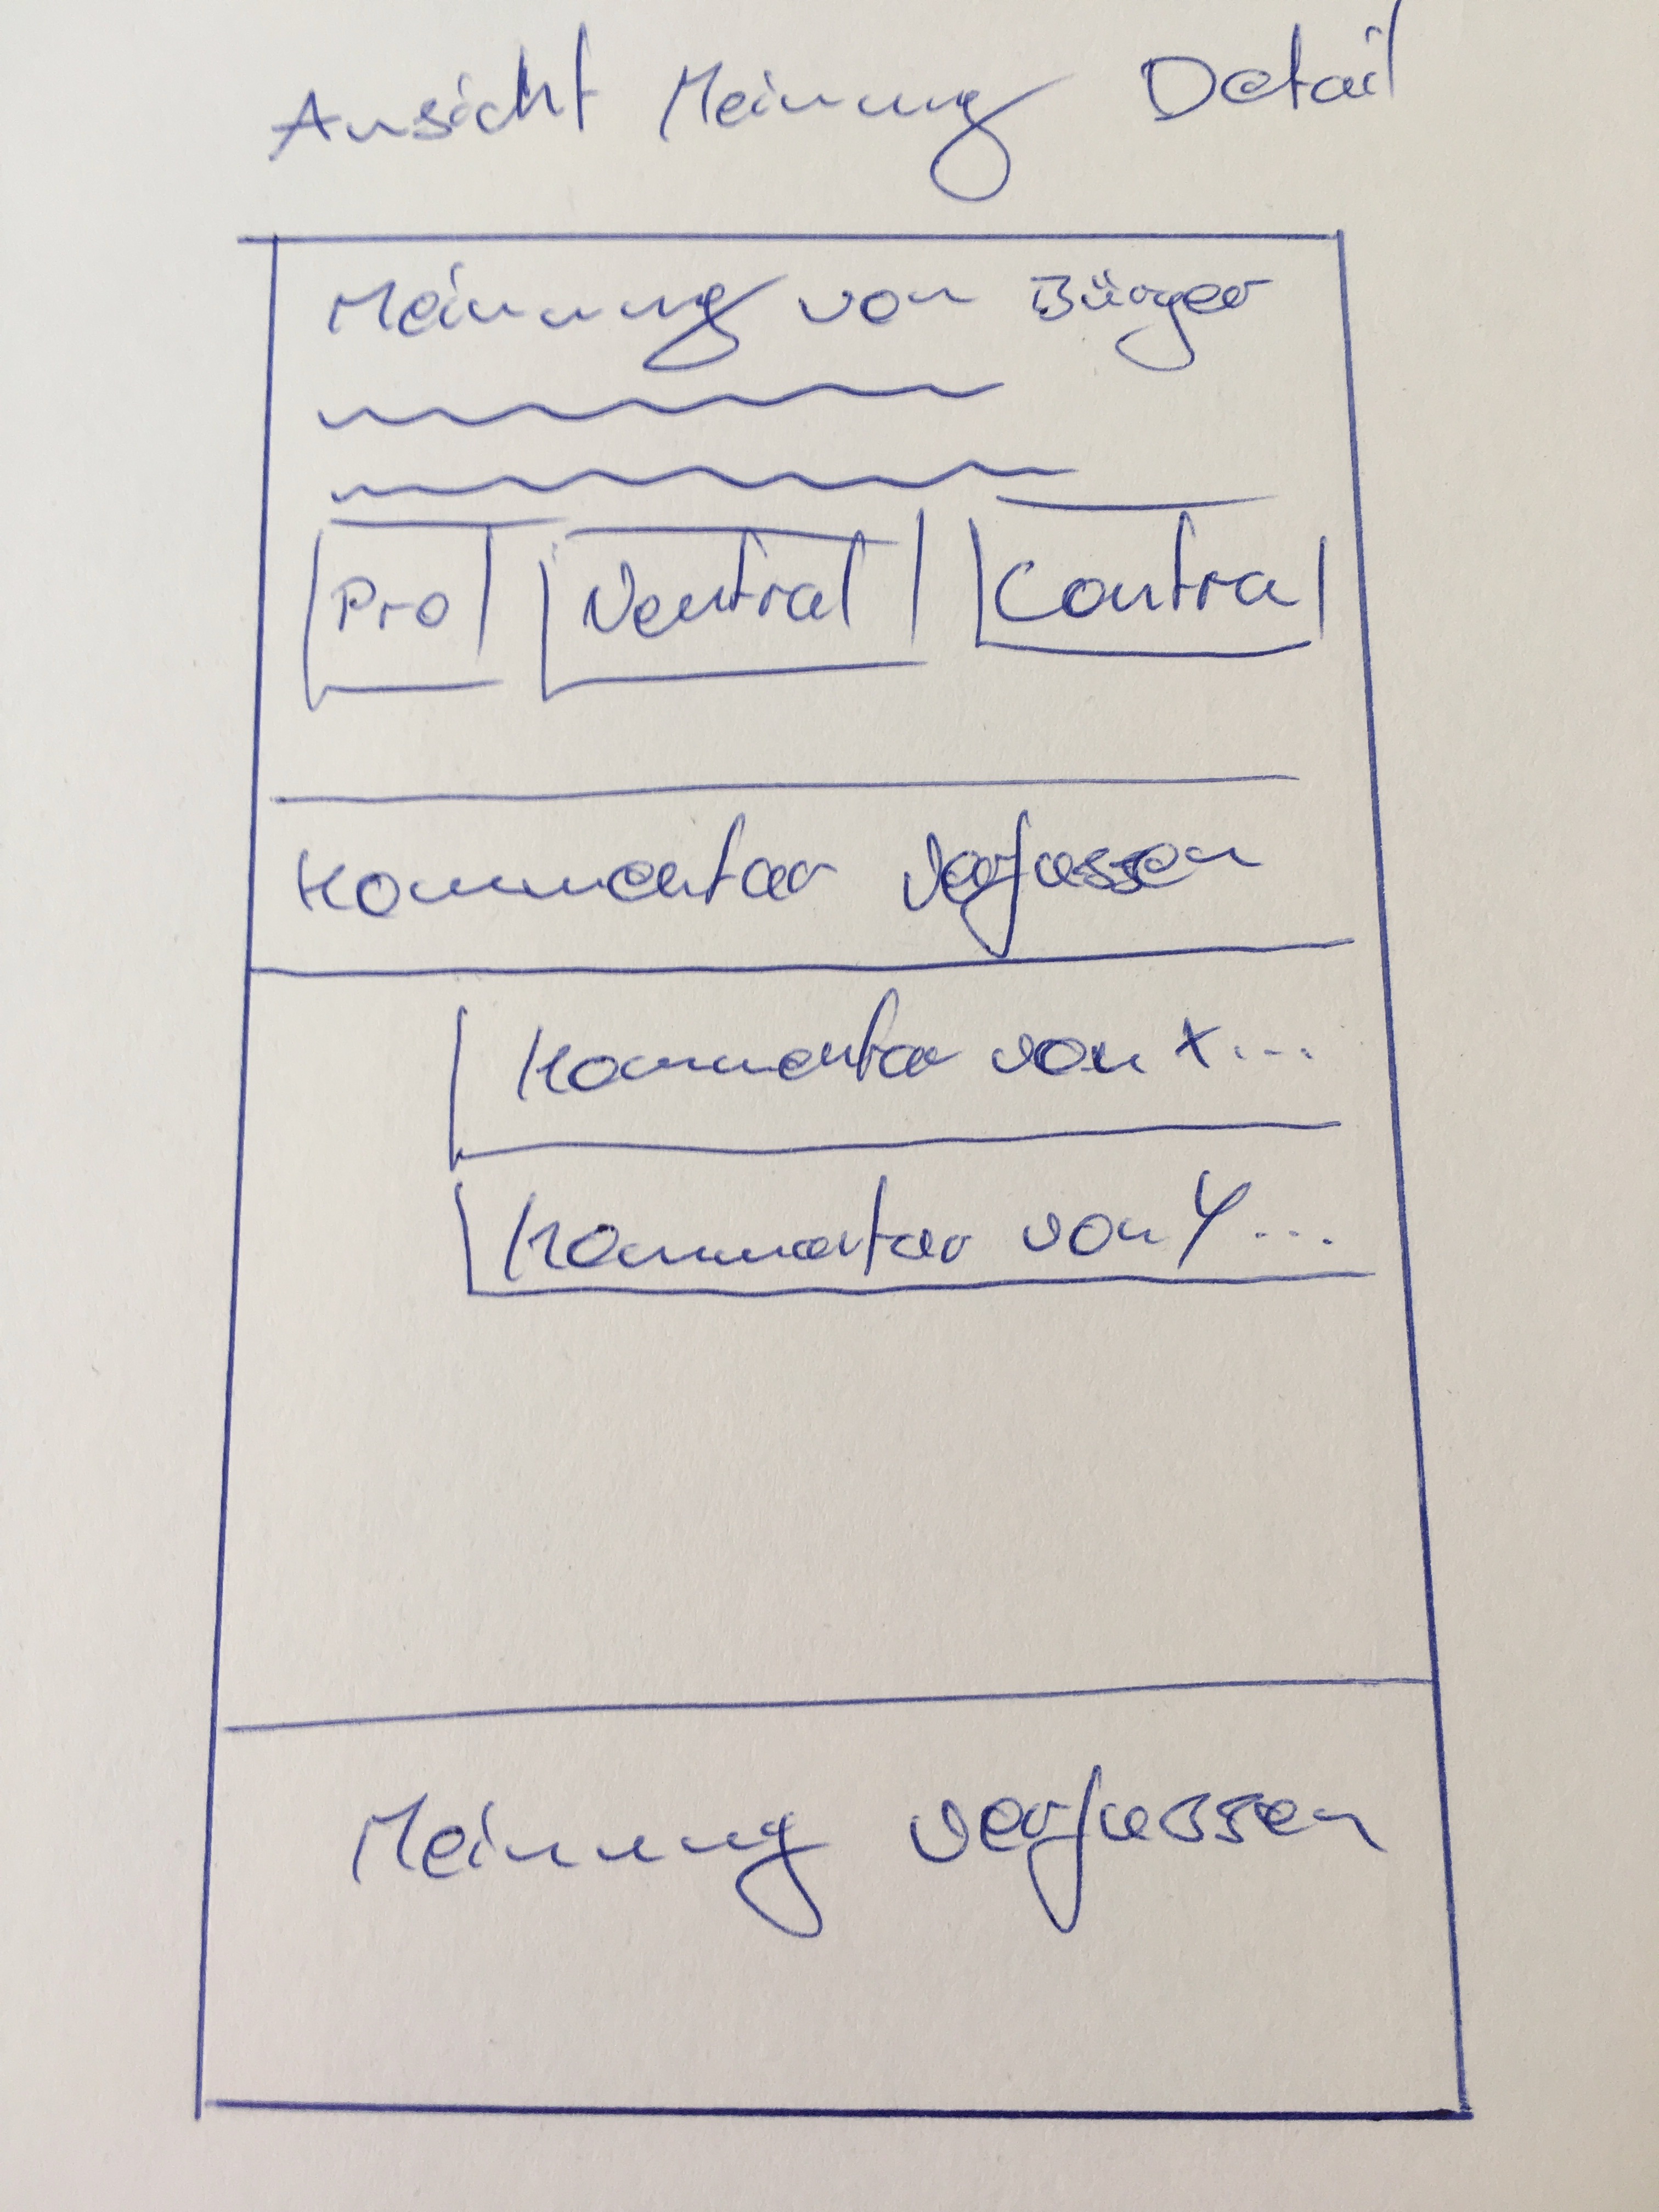 Ansicht Meinung Detail
Meinung von Bürger
Pro Neutral Contra
Kommentar verfassen
Kommentar von X...
Kommentar von Y...
Meinung verfassen